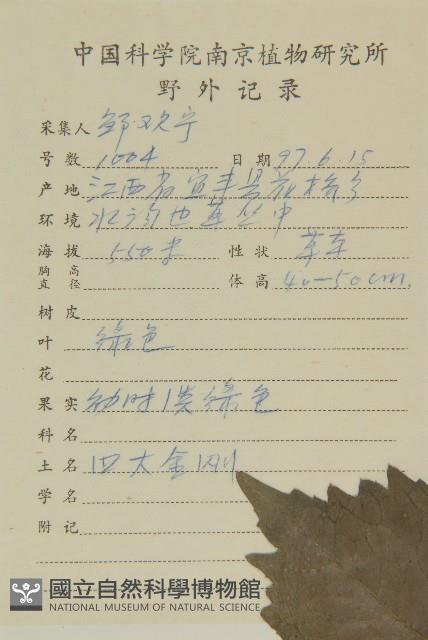 中国科学院南京植物研究所
野外记录
采集人 邹欢宁
号数 1004 日期 97.6.15
产地 江西省宜丰县花桥乡
环境 水沟边草丛中
海拔 550米 性状 草本
胸高直径 体高 40-50cm.
树皮
叶 绿色
花
果实 幼时浅绿色
科名
土名 四大金刚
学名
附记
國立自然科學博物館
NATIONAL MUSEUM OF NATURAL SCIENCE